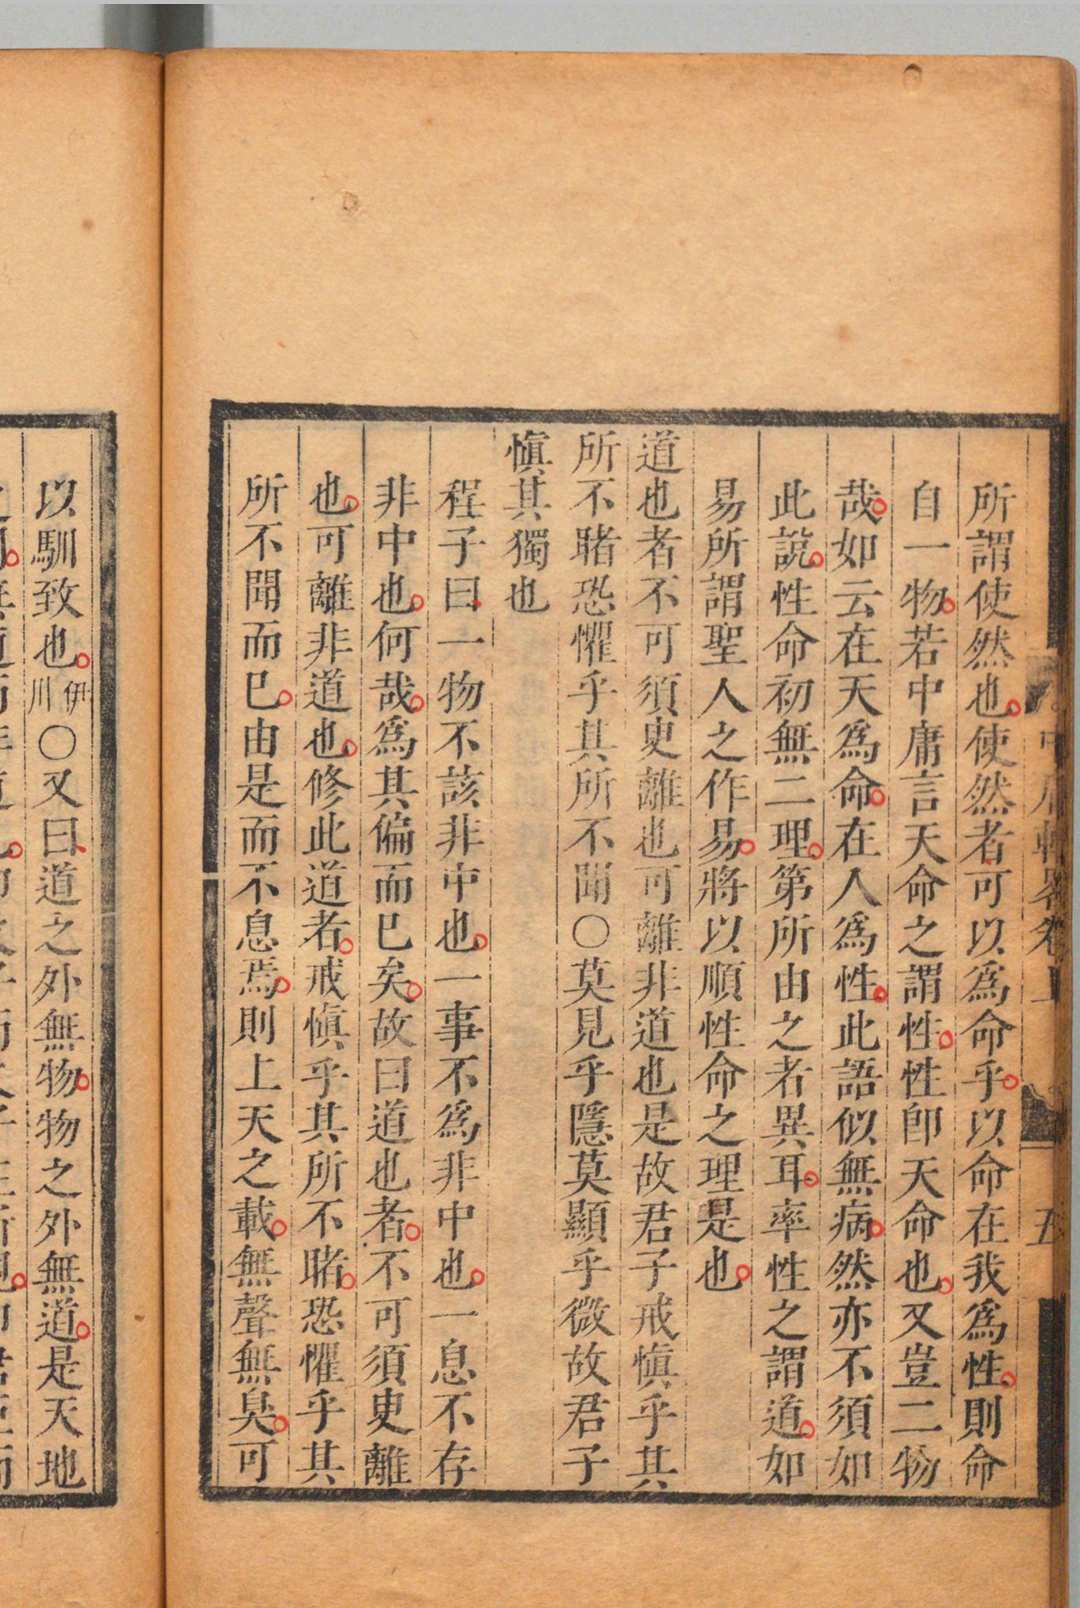 中庸輯畧卷上
五
所謂使然也使然者可以爲命乎以命在我爲性則命
自一物若中庸言天命之謂性性卽天命也又豈二物
哉如云在天爲命在人爲性此語似無病然亦不須如
此說性命初無二理第所由之者異耳率性之謂道如
易所謂聖人之作易將以順性命之理是也
道也者不可須臾離也可離非道也是故君子戒慎乎其
所不睹恐懼乎其所不聞〇莫見乎隱莫顯乎微故君子
慎其獨也
程子曰一物不該非中也一事不爲非中也一息不存
非中也何哉爲其偏而已矣故曰道也者不可須臾離
也可離非道也修此道者戒慎乎其所不睹恐懼乎其
所不聞而已由是而不息焉則上天之載無聲無臭可
以馴致也伊川〇又曰道之外無物物之外無道是天地